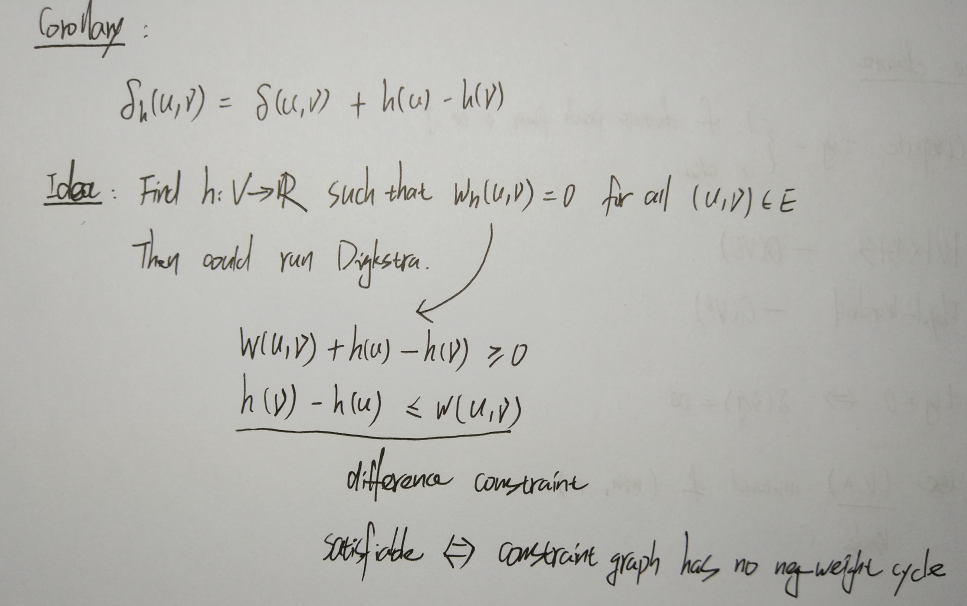 Corollary :
δh(u,v) = δ(u,v) + h(u) - h(v)
Idea : Find h: V→ℝ such that Wh(u,v) = 0 for all (u,v) ∈ E
Then could run Digkstra.
W(u,v) + h(u) - h(v) ≥ 0
h(v) - h(u) ≤ W(u,v)
difference constraint
satisfiable ⇔ constraint graph has no neg-weight cycle